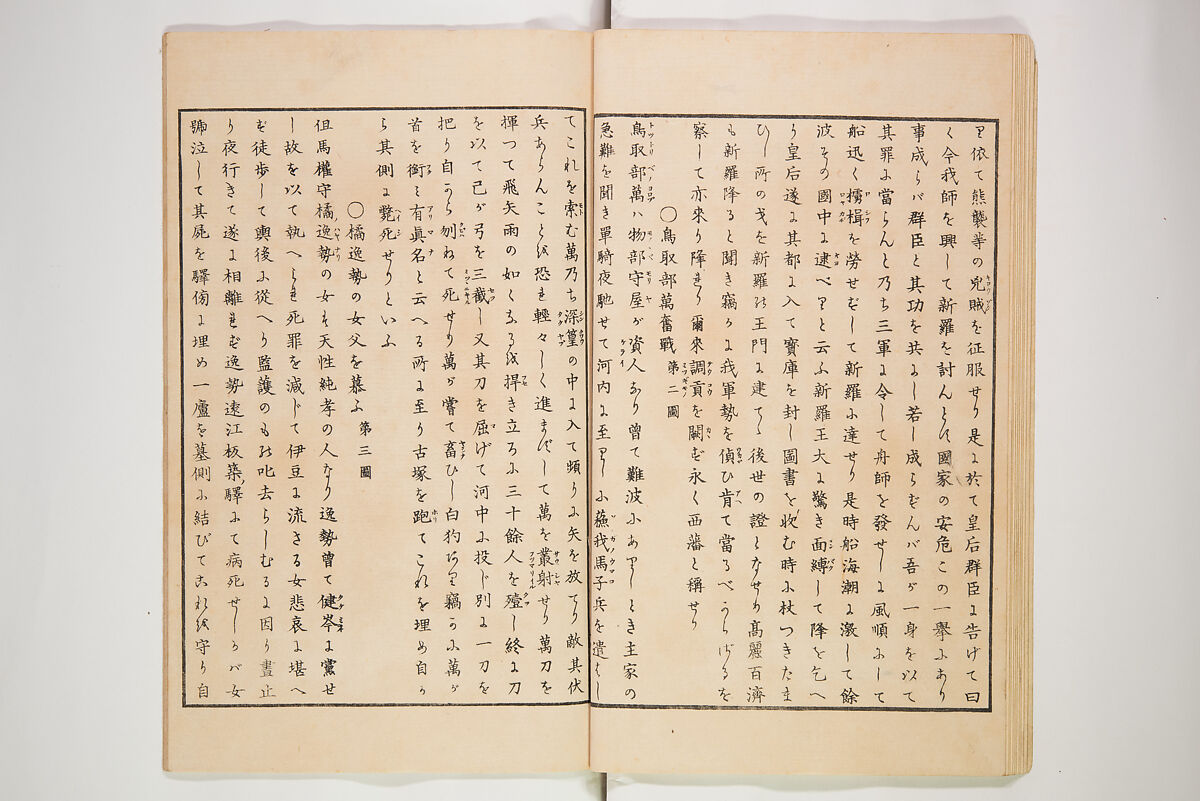 り依て熊襲等の兇賊を征服せり是に於て皇后群臣に告げて曰
く今我師を興して新羅を討んとす國家の安危この一擧にあり
事成らバ群臣と其功を共にし若し成らずんバ吾が一身を以て
其罪に當らんと乃ち三軍に令して舟師を發せしに風順にして
船迅く檣楫を勞せずして新羅に達せり是時船海潮に激して餘
波その國中に逮べりと云ふ新羅王大に驚き面縛して降を乞へ
り皇后遂に其都に入て寶庫を封し圖書を收む時に杖つきたま
ひし所の戈を新羅の王門に建てゝ後世の證となせり高麗百濟
も新羅降ると聞き竊かに我軍勢を偵ひ肯て當るべからざるを
察して亦來り降れり爾來調貢を闕ず永く西藩と稱せり
〇鳥取部萬奮戰 第二圖
鳥取部萬ハ物部守屋が資人なり曾て難波にありしとき主家の
急難を聞き單騎夜馳せて河内に至りしに蘇我馬子兵を遣はし
てこれを索む萬乃ち深篁の中に入て頻りに矢を放てり敵其伏
兵あらんことを恐れ輕々しく進まずして萬を叢射せり萬刀を
揮つて飛矢雨の如くなるを捍き立ろに三十餘人を殪し終に刀
を以て已が弓を三截し又其刀を屈げて河中に投じ別に一刀を
把り自から刎ねて死せり萬が嘗て畜ひし白犳ありり竊かに萬が
首を銜へ有眞名と云へる所に至り古塚を跑てこれを埋め自か
ら其側に斃死せりといふ
〇橘逸勢の女父を慕ふ 第三圖
但馬權守橘逸勢の女は天性純孝の人なり逸勢曾て健岑に黨せ
し故を以て執へられ死罪を減じて伊豆に流さる女悲哀に堪へ
ず徒歩して輿後に從へり監護のもの叱去らしむるに因り晝止
り夜行きて遂に相離れず逸勢遠江板築驛にて病死せしかバ女
號泣して其屍を驛傍に埋め一廬を墓側に結びてこれを守り自